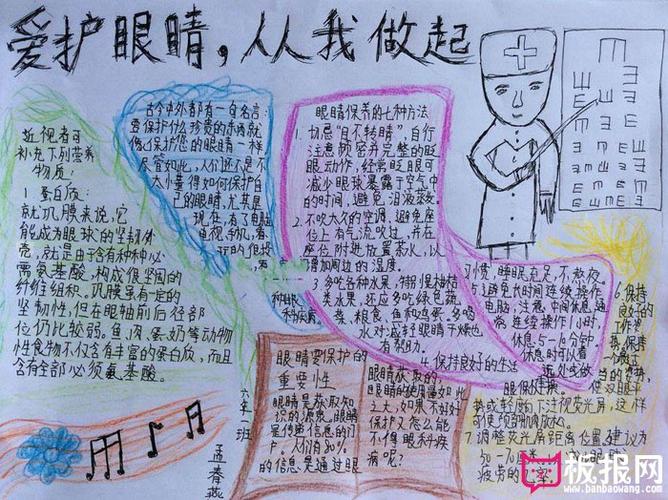 爱护眼睛,从从我做起
近视者可
补充下列营养
物质:
1 蛋白质:
就巩膜来说,它
能成为眼球的坚韧外
壳,就是由于含有种种必
需氨基酸,构成很坚固的
纤维组织。巩膜虽有一定的
坚韧性,但在眼轴前后径部
位仍比较弱。鱼、肉、蛋、奶等动物
性食物不仅含有丰富的蛋白质,而且
含有全部必须氨基酸。
古今中外都有一句名言:
要保护什么珍贵的东西就
像保护您的眼睛一样
尽管如此,人们还是不
大小量得如何保护自
己的眼睛,尤其是
现在,有了电脑
电视,手机,看
眼睛保养的七种方法
1. 切忌"目不转睛",自行
注意频密并完整的眨
眼动作,经常眨眼可
减少眼球暴露于空气中
的时间,避免泪液蒸发。
2. 不吹太久的空调,避免座
位上有气流吹过,并在
座位附近放置茶水,以
增加周边的湿度。
3. 多吃各种水果,特别是柑桔
类水果,还应多吃绿色蔬
菜、粮食、鱼和鸡蛋。多喝
水对减轻眼睛干燥也
有帮助。
4. 保持良好的生活
习惯,睡眠充足,不熬夜。
5. 避免长时间连续操作
电脑,注意中间休息通
常连续操作1小时,
休息5-10分钟。
休息时可以看
远处或做
眼保健操。
6. 保持
良好的
工作姿
势。保持
一个最适
当的姿势,
使双眼平
视或轻度向下注视荧光屏,这样
可使颈部肌肉放松。
7. 调整荧光屏距离位置。建议为
50-70厘米
疲劳的
眼睛要保护的
重要性
眼睛是获取知
识的源泉,眼睛
是传递信息的门
户。人们有80%
的信息是通过眼
眼睛获取的,
眼睛的使用量如此
之大,如果不好好
保护又怎么能
不得眼科疾
病呢?
六年一班
孟春燕
板报网
www.banbaowang.com